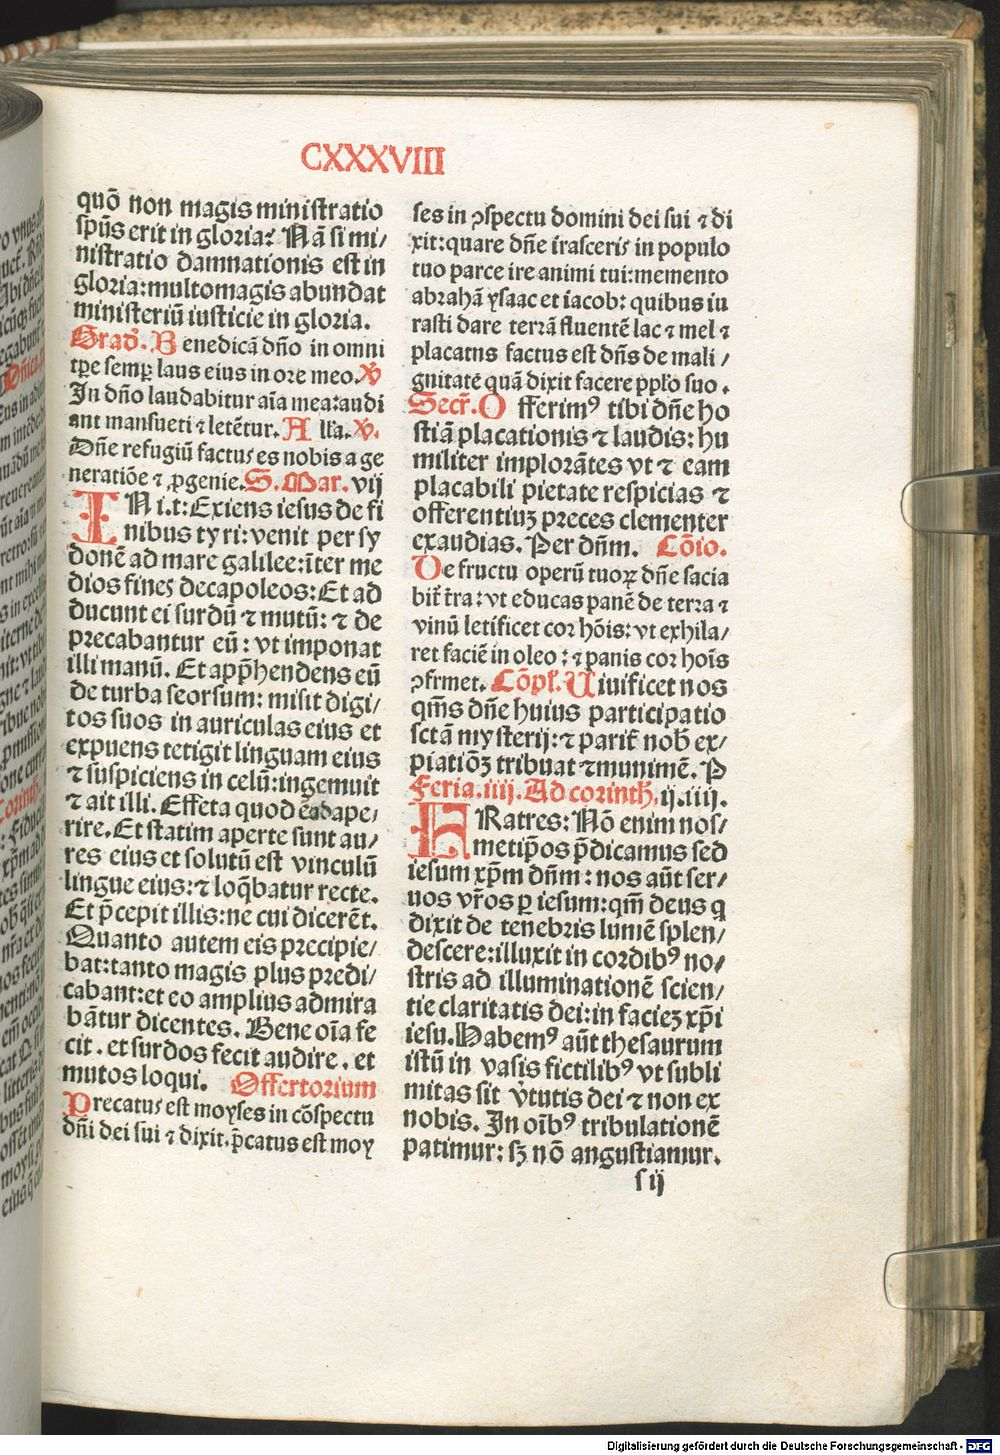 CXXXVIII
quō non magis ministratio
spūs erit in gloria? Nā si mi/
nistratio damnationis est in
gloria: multomagis abundat
ministeriū iusticie in gloria.
Grad̛. Benedicā dño in omni
tꝑe semꝑ laus eius in ore meo. ℣
In dño laudabitur aīa mea: audi
ant mansueti ⁊ letētur. Alľa. ℣.
Dñe refugiū factus es nobis a ge
neratiōe ⁊ ꝓgenie. S. Mar. vij
IN i.t: Exiens iesus de fi
nibus tyri: venit per sy
donē ad mare galilee: īter me
dios fines decapoleos: Et ad
ducunt ei surdū ⁊ mutū: ⁊ de
precabantur eū: vt imponat
illi manū. Et apprħendens eū
de turba seorsum: misit digi/
tos suos in auriculas eius et
expuens tetigit linguam eius
⁊ suspiciens in celū: ingemuit
⁊ ait illi. Effeta quod ē adape/
rire. Et statim aperte sunt au/
res eius et solutū est vinculū
lingue eius: ⁊ loq̄batur recte.
Et p̄cepit illis: ne cui dicerēt.
Quanto autem eis precipie/
bat: tanto magis plus predi/
cabant: et eo amplius admira
bātur dicentes. Bene oīa fe
cit. et surdos fecit audire. et
mutos loqui. Offertorium
Precatus est moyses in cōspectu
dñi dei sui ⁊ dixit. p̄catus est moy
ses in ꝯspectu domini dei sui ⁊ di
xit: quare dñe irasceris in populo
tuo parce ire animi tui: memento
abrahā ysaac et iacob: quibus iu
rasti dare terrā fluentē lac ⁊ mel ⁊
placatus factus est dñs de mali /
gnitate quā dixit facere pplo suo.
Secr̃. Offerimꝰ tibi dñe ho
stiā placationis ⁊ laudis: hu
militer implorātes vt ⁊ eam
placabili pietate respicias ⁊
offerentiuꝫ preces clementer
exaudias. Per dñm. Cōio.
De fructu operū tuoꝝ dñe sacia
bit̃ tr̃a: vt educas panē de terra ⁊
vinū letificet cor hōis: vt exhila/
ret faciē in oleo: ⁊ panis cor hoīs
ꝯfirmet. Cōpľ. Viuificet nos
qm̄s dñe huius participatio
sctā mysterij: ⁊ parit̃ nob̄ ex/
piatiōꝫ tribuat ⁊ munimē. P̄
Feria. iiij. Ad corinth̄. ij. iiij.
FRatres: Nō enim nos/
metip̄os p̄dicamus sed
iesum xp̄m dñm: nos aūt ser/
uos vr̄os ꝑ iesum: qm̄ deus q
dixit de tenebris lumē splen/
descere: illuxit in cordibꝰ no/
stris ad illuminationē scien/
tie claritatis dei: in facieꝫ xp̄i
iesu. Habemꝰ aūt thesaurum
istū in vasis fictilibꝰ vt subli
mitas sit v̓tutis dei ⁊ non ex
nobis. In oībꝰ tribulationē
patimur: sꝫ nō angustiamur.
s ij
Digitalisierung gefördert durch die Deutsche Forschungsgemeinschaft - DFG